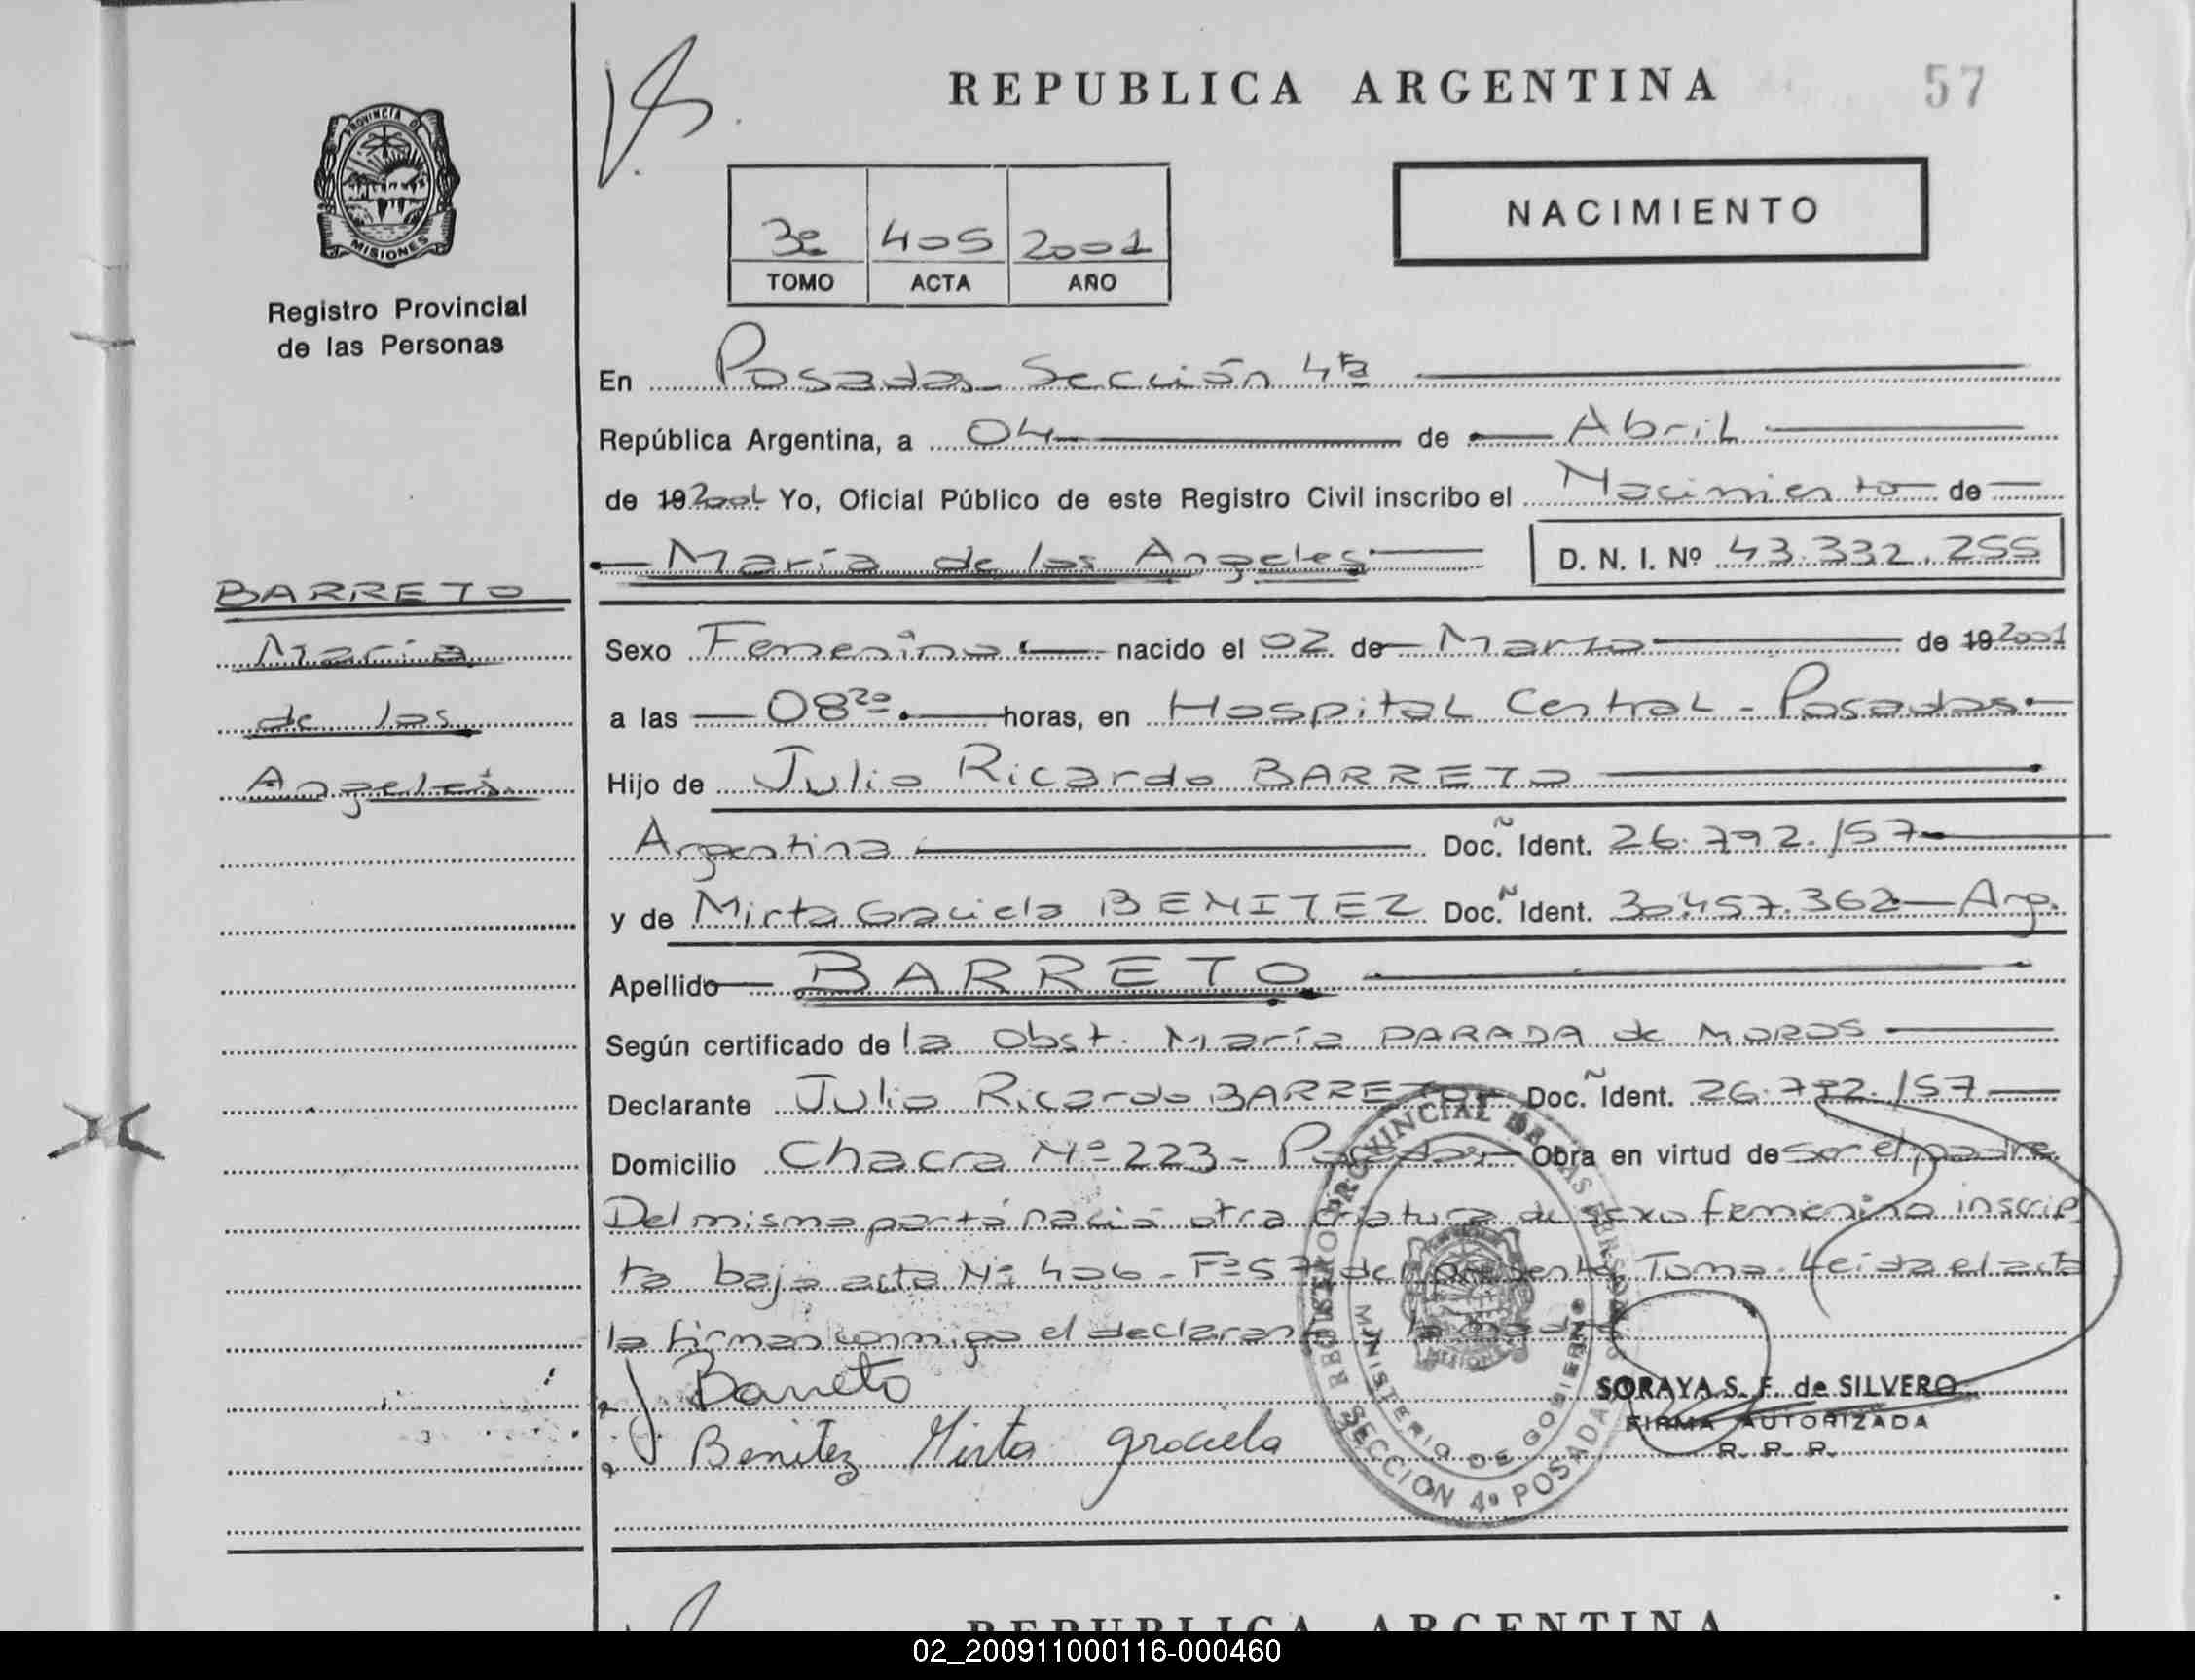 REPUBLICA ARGENTINA
57
PROVINCIA DE
MISIONES
Registro Provincial
de las Personas
3º 405 2001
TOMO ACTA AÑO
NACIMIENTO
En Posadas Sección 4ta
República Argentina, a 04 de Abril
de 19 2001 Yo, Oficial Público de este Registro Civil inscribo el Nacimiento de
María de los Angeles D. N. I. Nº 43.332.255
BARRETO
María
de los
Angeles
Sexo Femenino nacido el 02 de Marzo de 19 2001
a las 08 20 horas, en Hospital Central - Posadas
Hijo de Julio Ricardo BARRETO
Argentina Doc. Ident. 26.792.157
y de Mirta Graciela BENITEZ Doc. Ident. 30.457.362 Arg.
Apellido BARRETO
Según certificado de la Obst. María PARADA de MOROS
Declarante Julio Ricardo BARRETO Doc. Ident. 26.792.157
Domicilio Chacra Nº 223 - Posadas Obra en virtud de ser el padre
Del mismo parto nació otra criatura de sexo femenino inscrip
ta bajo acta Nº 406 - Fº 57 del presente Tomo. Leída el acta
la firman conmigo el declarante y la madre
Barreto
Benitez Mirta graciela
REGISTRO PROVINCIAL DE LAS PERSONAS
MINISTERIO DE GOBIERNO
SECCION 4ª POSADAS
SORAYA S. F. de SILVERO
FIRMA AUTORIZADA
R. P. P.
REPUBLICA ARGENTINA
02_200911000116-000460